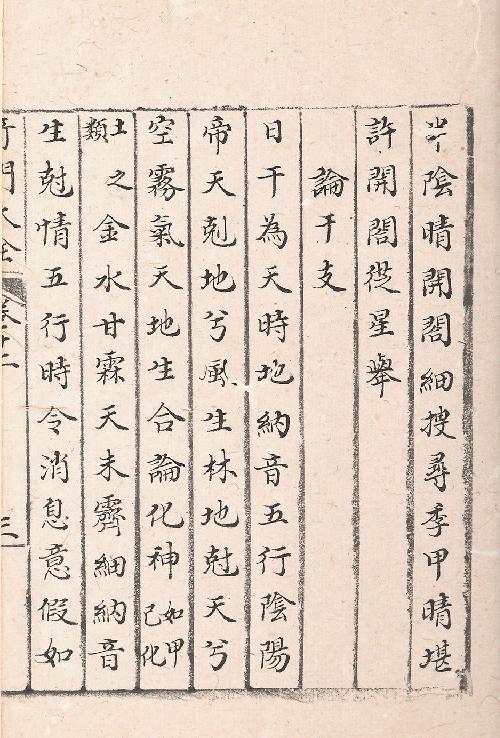 半陰晴開閣細搜尋季甲晴堪
許開閣從星舉
論干支
日干為天時地納音五行陰陽
帝天剋地兮風生林地尅天兮
空霧氣天地生合論化神如甲己化
土之類金水甘霖天未霽細納音
生尅情五行時令消息意假如
奇門大全 卷十二 三